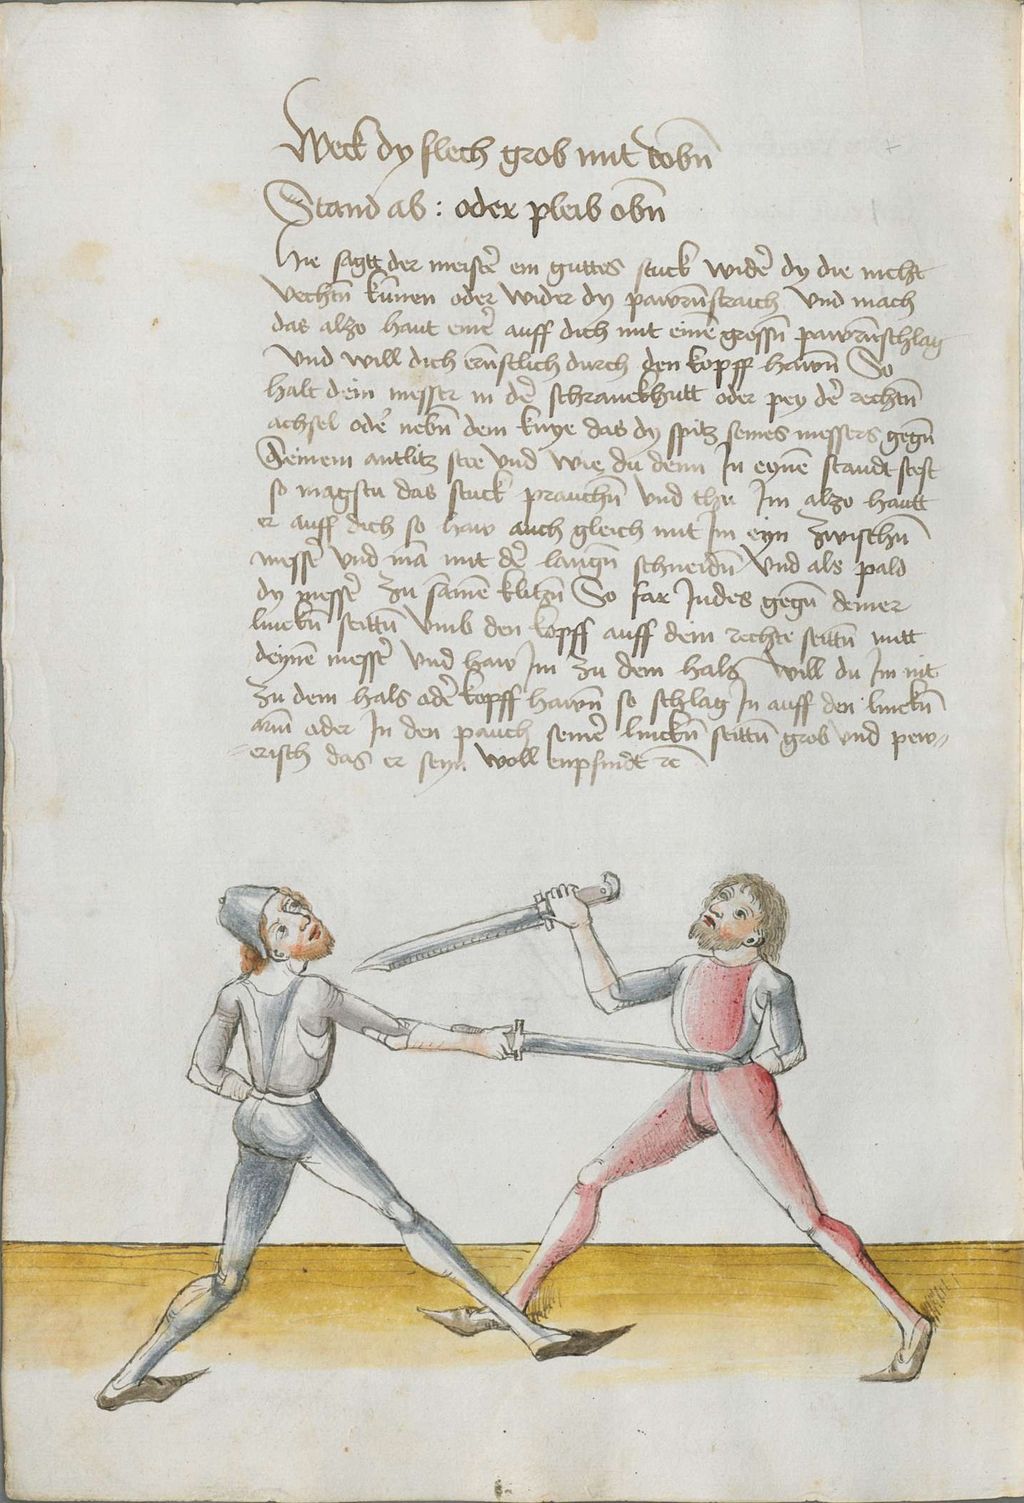 Weck dy flech grob mit tobn̄
Stand ab : oder pleib obn̄
Hie sagtt der meistē ein guttes stuck widē dy die nicht
vechtn̄ kūnen oder wider dy pawrn̄straich Vnd mach
das alzo haut einē auff dich mit einē grossn̄ pawrn̄schlag
Vnd will dich ernstlich durch den kopff hawn̄ So
halt dein messer in dē schranckhutt oder pey dē rechtn̄
achsel odē nebn̄ dem knye das dy spitz seines messers gegn̄
Seinem antlitz stee Vnd wie du denn In eynē standt stest
so magstu das stuck prauchn̄ Vnd thu Im alzo hautt
er auff dich so haw auch gleich mit Im eyn zwischn̄
messē Vnd mā mit dē langn̄ schneidn̄ Vnd als pald
dy messē zu samē klitzn̄ So far Indes gegn̄ deiner
linckn̄ seittn̄ Vmb den kopff auff dein rechte seittn̄ mitt
deynē messē Vnd haw Im zu dem hals will du Im nit
zu dem hals odē kopff hawn̄ so schlag In auff den linckn̄
arm oder In den pauch seinē linckn̄ seittn̄ grob vnd pew=
=erisch das er seyn woll enpfindt rc̄